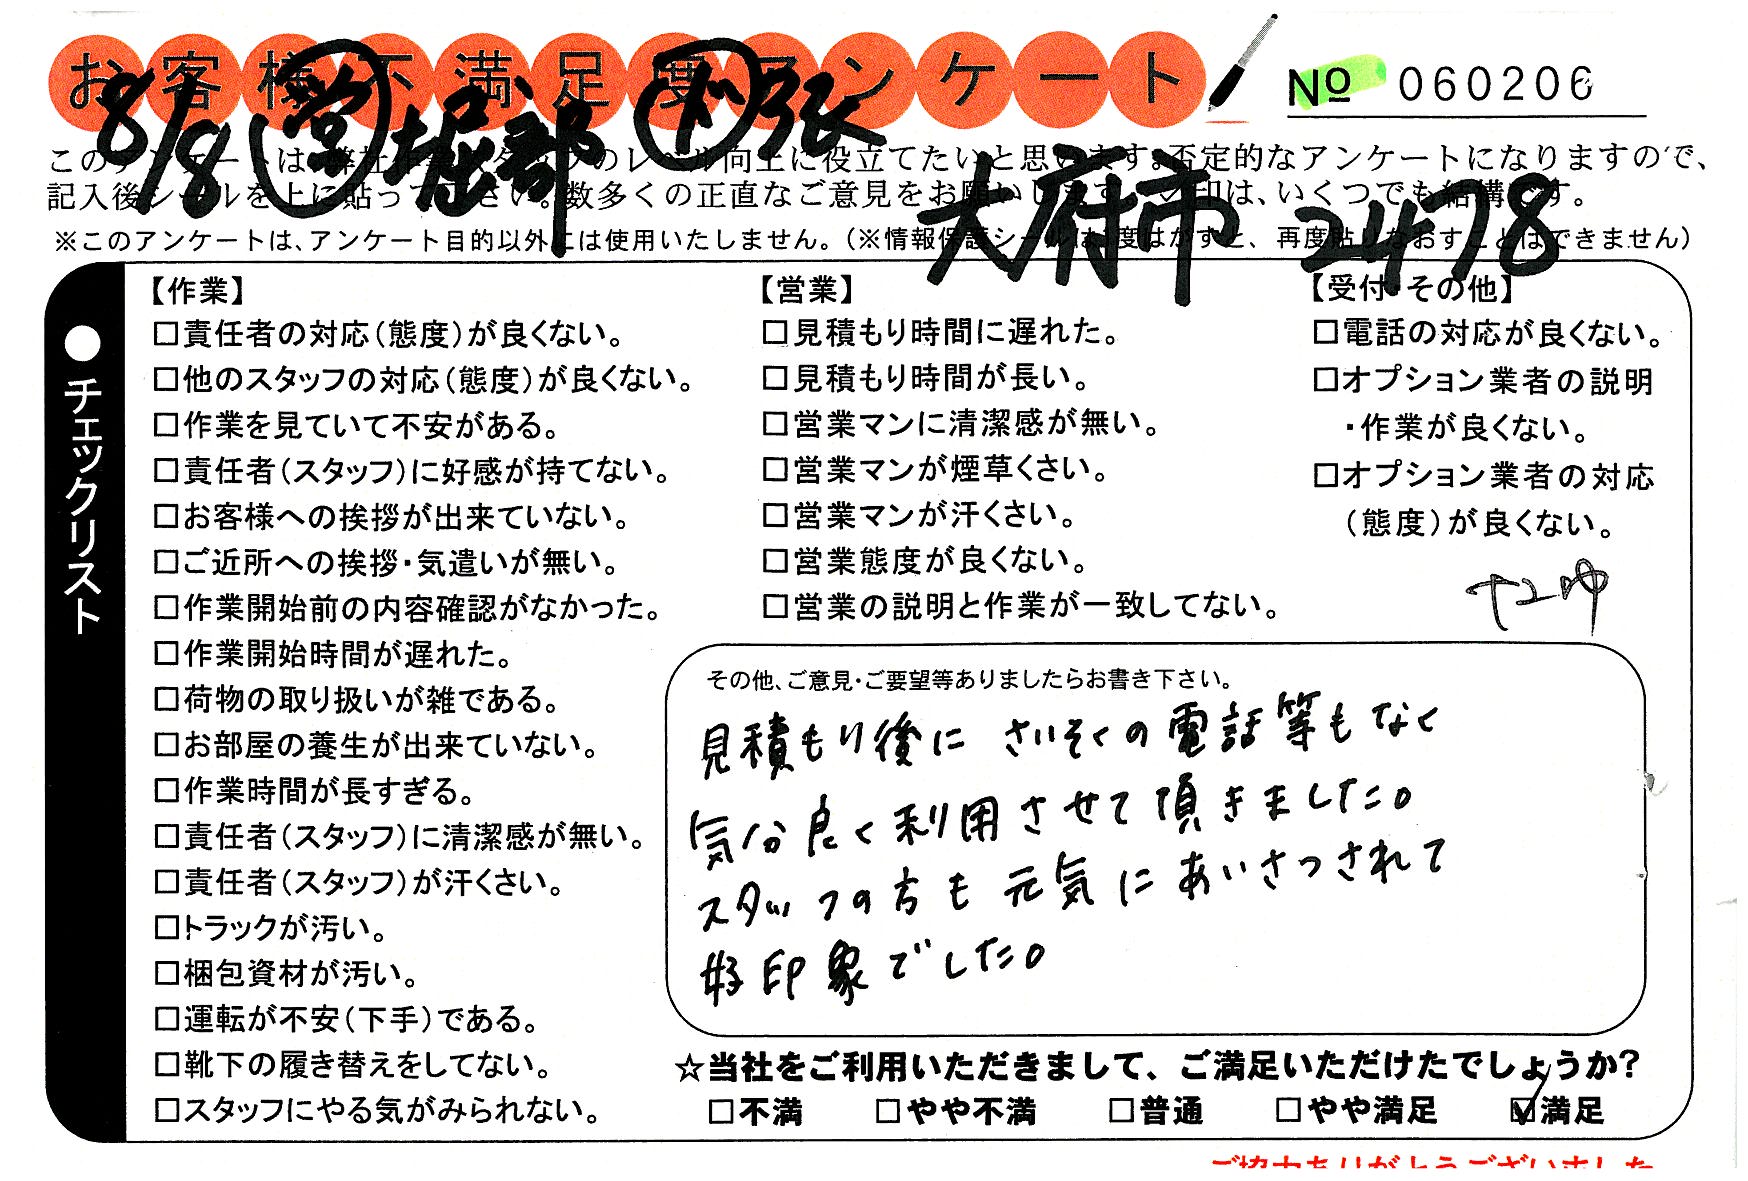 お客様不満足度アンケート
No 060206
8/8 営 堀部 ド 張
大府市 2478
このアンケートは、弊社作業スタッフのレベル向上に役立てたいと思います。否定的なアンケートになりますので、
記入後シールを上に貼って下さい。数多くの正直なご意見をお願いします。✓印は、いくつでも結構です。
※このアンケートは、アンケート目的以外には使用いたしません。(※情報保護シールは1度はがすと、再度貼りなおすことはできません)
●チェックリスト
【作業】
□責任者の対応(態度)が良くない。
□他のスタッフの対応(態度)が良くない。
□作業を見ていて不安がある。
□責任者(スタッフ)に好感が持てない。
□お客様への挨拶が出来ていない。
□ご近所への挨拶・気遣いが無い。
□作業開始前の内容確認がなかった。
□作業開始時間が遅れた。
□荷物の取り扱いが雑である。
□お部屋の養生が出来ていない。
□作業時間が長すぎる。
□責任者(スタッフ)に清潔感が無い。
□責任者(スタッフ)が汗くさい。
□トラックが汚い。
□梱包資材が汚い。
□運転が不安(下手)である。
□靴下の履き替えをしてない。
□スタッフにやる気がみられない。
【営業】
□見積もり時間に遅れた。
□見積もり時間が長い。
□営業マンに清潔感が無い。
□営業マンが煙草くさい。
□営業マンが汗くさい。
□営業態度が良くない。
□営業の説明と作業が一致してない。
【受付・その他】
□電話の対応が良くない。
□オプション業者の説明
・作業が良くない。
□オプション業者の対応
(態度)が良くない。
その他、ご意見・ご要望等ありましたらお書き下さい。
見積もり後に さいそくの電話等もなく
気分良く利用させて頂きました。
スタッフの方も元気にあいさつされて
好印象でした。
☆当社をご利用いただきまして、ご満足いただけたでしょうか?
□不満 □やや不満 □普通 □やや満足 ☑満足
ご協力ありがとうございました